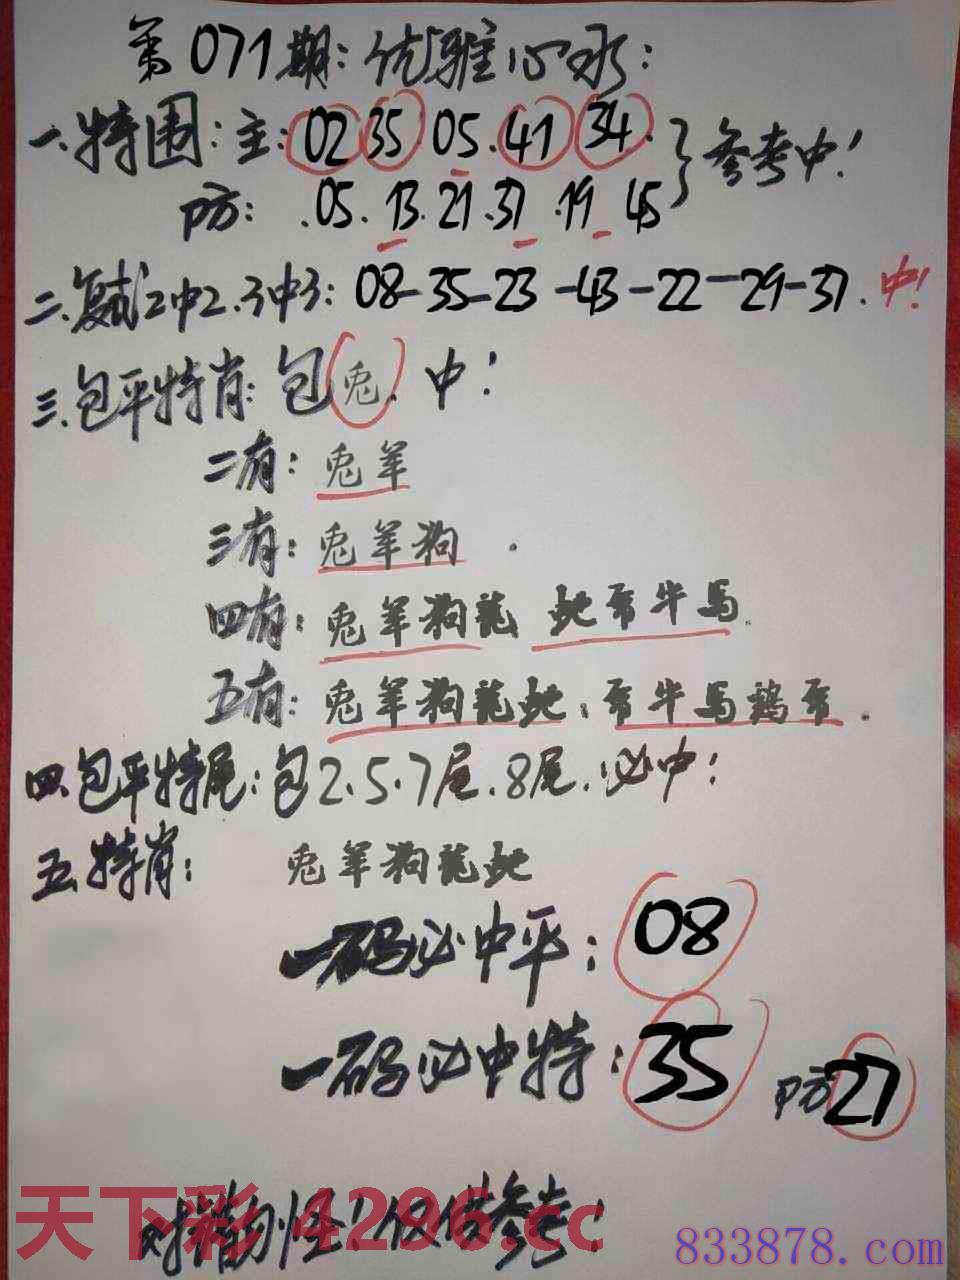 第071期：优雅心水：
一.特围：主：02 35 05.41 34. }参考中！
防：.05.13.21.37.19 45
二.复试2中2.3中3：08-35-23-43-22-29-37.中！
三.包平特肖：包兔.中！
二有：兔羊
三有：兔羊狗.
四有：兔羊狗龍 蛇 牛马.
五有：兔羊狗龍蛇： 牛马鷄 .
四.包平特尾：包2.5.7尾.8尾.必中！
五.特肖：兔羊狗龍蛇
一码必中平：08
一码必中特：35 防27
对错勿怪！仅供参考！
天下彩 4296.cc
833878.com